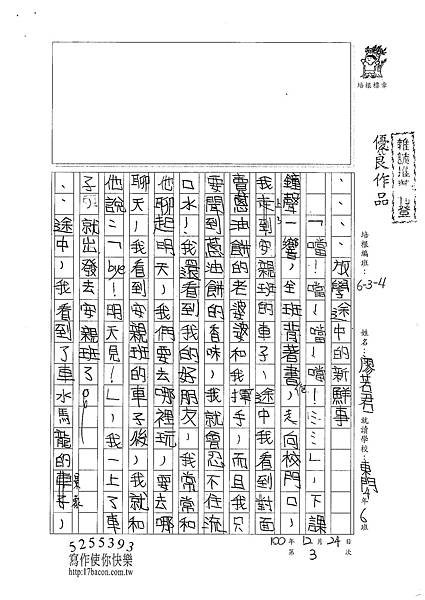 培根標章
雜誌推薦刊登
優良作品
培根編班：6-3-4
姓名：廖苦君
就讀學校：東門 4年6班
100年12月24日
第3次
放學途中的新鮮事
「噹！噹！噹！噹！……」，下課
鐘聲一響，全班背著書包，走向校門口，
我走到安親班的車子，途中我看到對面
賣蔥油餅的老婆婆和我揮手，而且我只
要聞到蔥油餅的香味，我就會忍不住流
口水！我還看到我的好朋友，我常常和
他聊起明天，我們要去哪裡玩，要去哪
聊天，我看到安親班的車子後，我就和
他說：「bye！明天見！」，我一上了車
子，就出發去安親班了。
途中，我看到了車水馬龍的車子，
5255393
寫作使你快樂
http://17bacon.com.tw